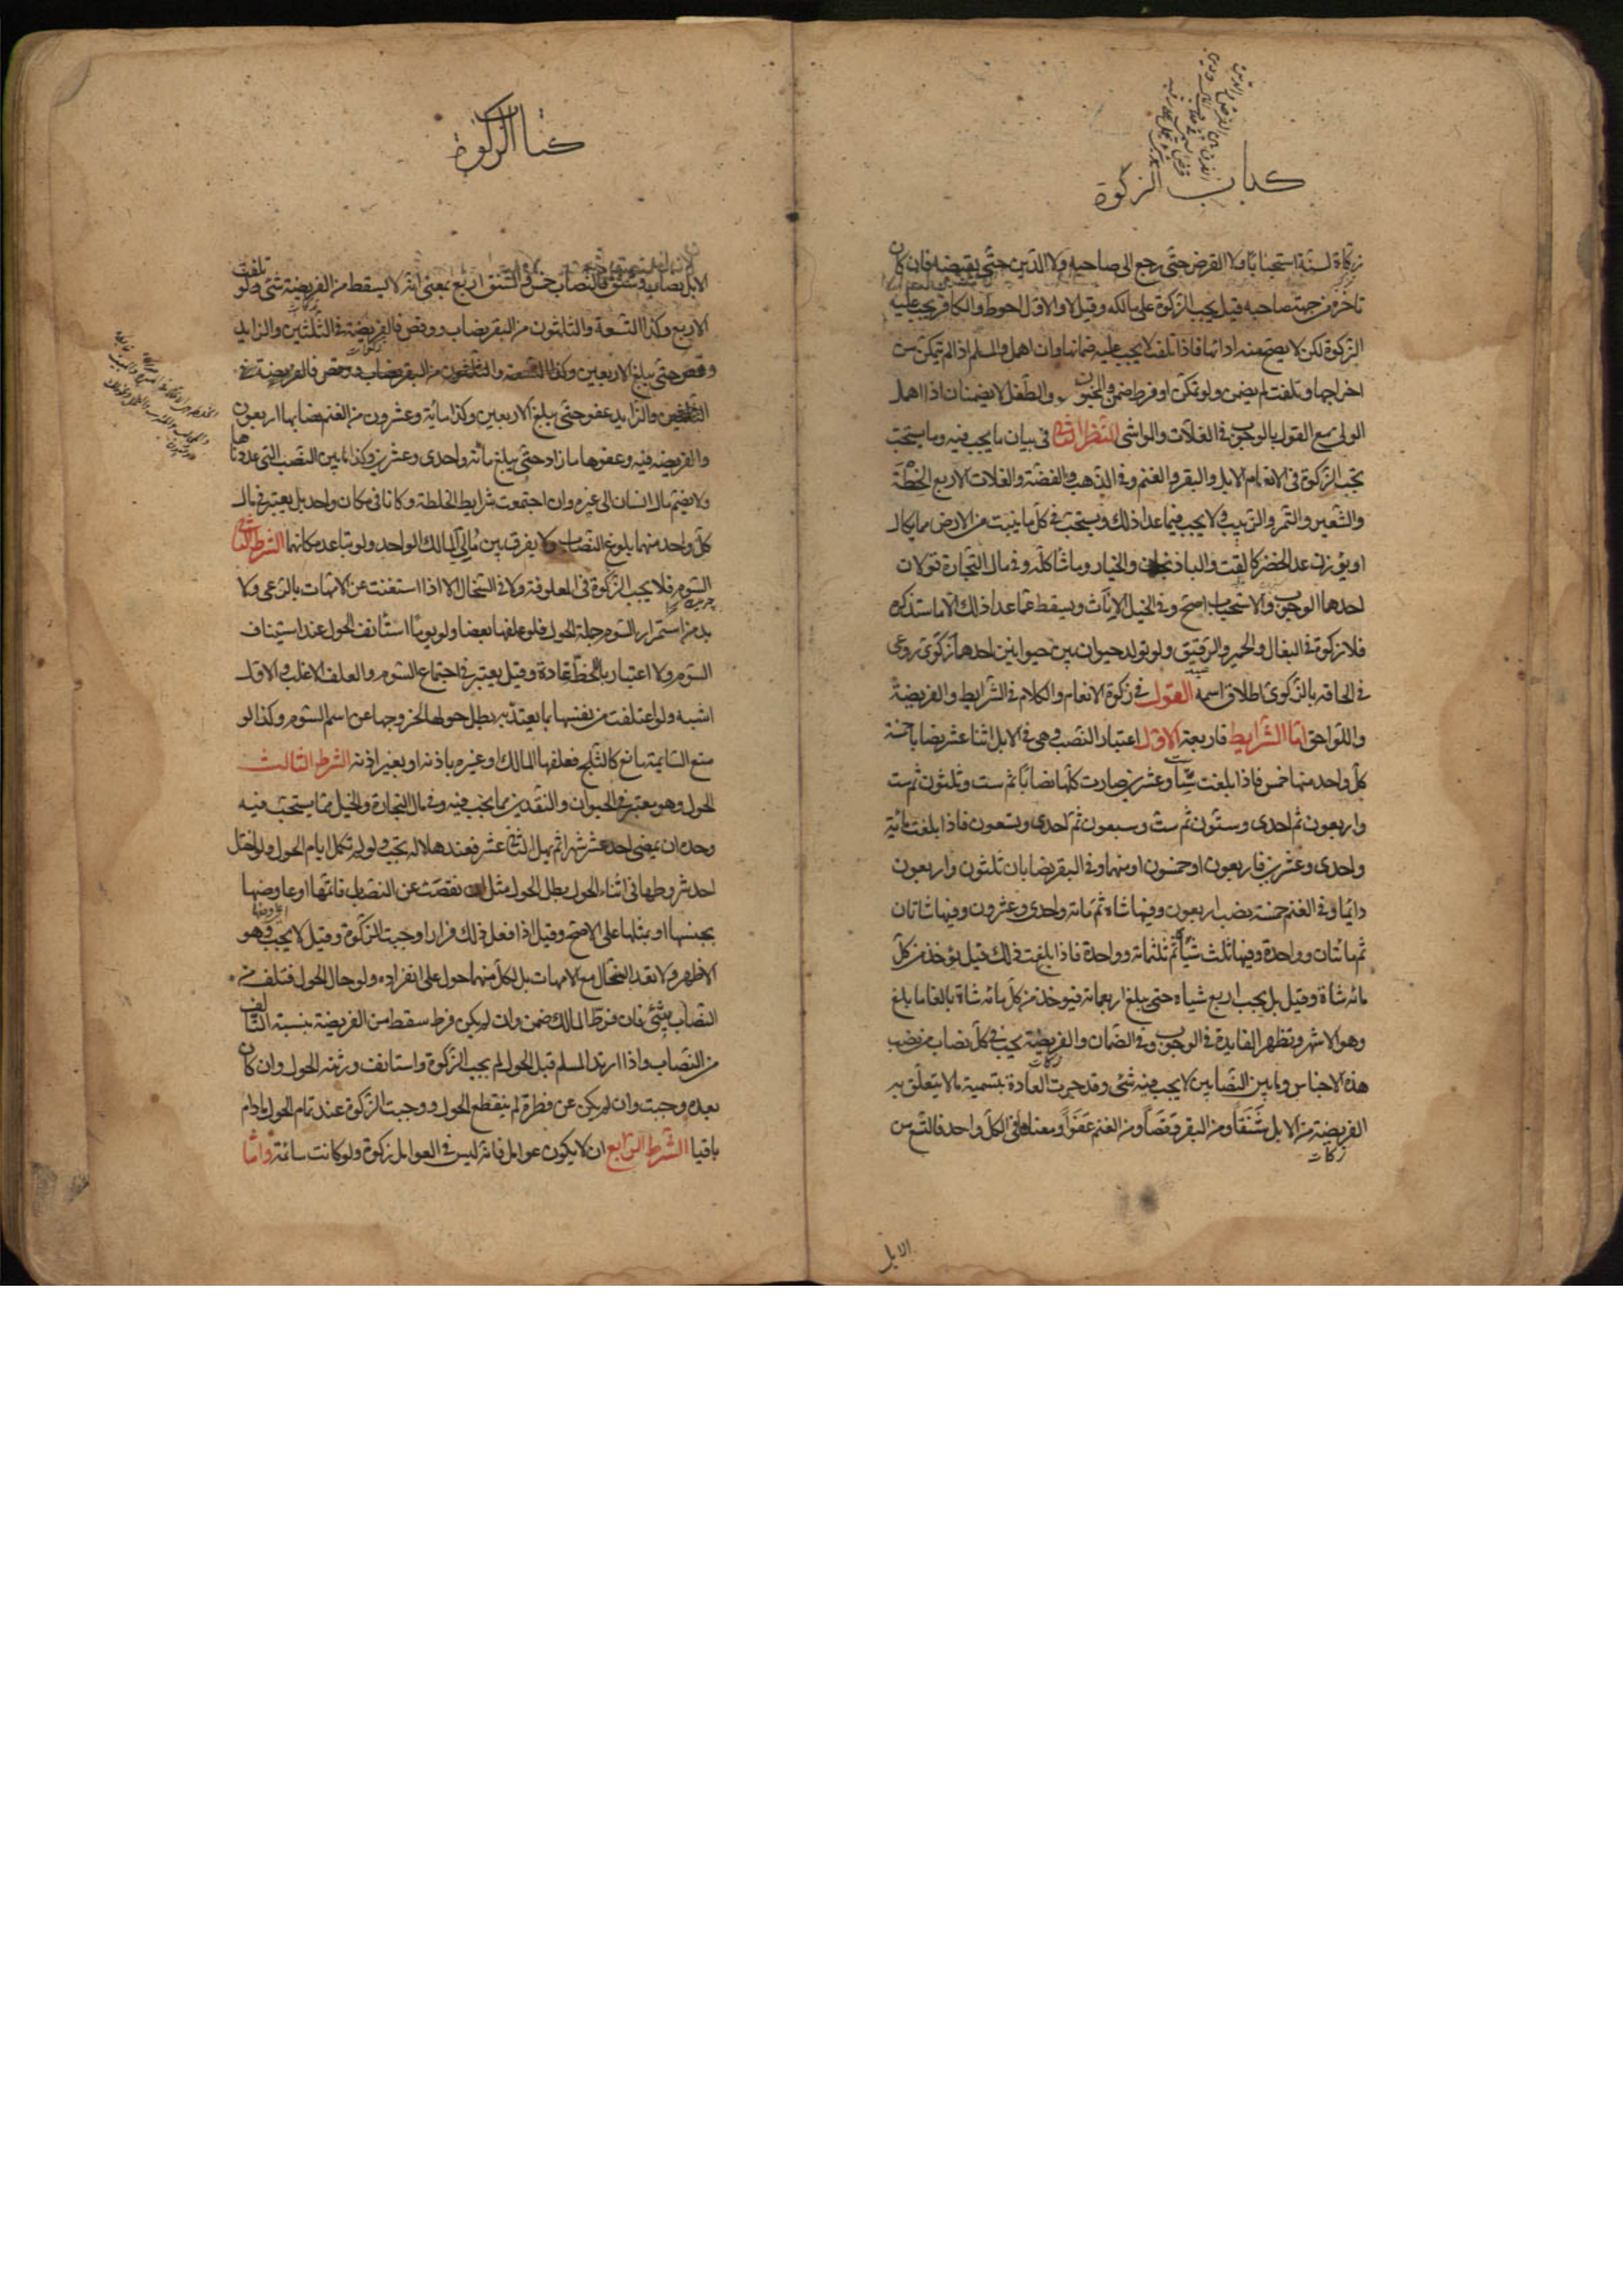 كتاب الزكوة
زكاة لسنة استحبابا ولا القرض حتى رجع الى صاحبه ولا الدين حتى يقبضه فان كان
تاخره من جهة صاحبه قيل يجب الزكوة على مالكه وقيل لا والاول احوط والكافر يجب عليه
الزكوة لكن لا يصح منه ادائها فاذا تلفت لا يجب عليه ضمانها وان اهمل والمسلم اذا لم يتمكن من
اخراجها وتلفت لم يضمن ولو تمكن او فرط ضمن والمجنون والطفل لا يضمنان اذا اهمل
الولى مع القول بالوجوب فى الغلات والمواشى النظر الثانى فى بيان ما يجب فيه وما يستحب
تجب الزكوة فى الانعام الابل والبقر والغنم وفى الذهب والفضة والغلات الاربع الحنطة
والشعير والتمر والزبيب ولا يجب فيما عدا ذلك ويستحب فى كل ما ينبت من الارض مما يكال
او يوزن عدا الخضر كالقت والباذنجان والخيار وما شاكله وفى مال التجارة قولان
احدهما الوجوب والاستحباب اصح وفى الخيل الاناث ويسقط عما عدا ذلك الا ما سنذكره
فلا زكوة فى البغال والحمير والرقيق ولو تولد حيوان بين حيوانين احدهما زكوى روعى
فى الحاقه بالزكوى اطلاق اسمه القول فى زكوة الانعام والكلام فى الشرايط والفريضة
واللواحق اما الشرايط فاربعة الاول اعتبار النصب وهى فى الابل اثنا عشر نصابا خمسة
كل واحد منها خمس فاذا بلغت ستا وعشرين صارت كلها نصابا ثم ست وثلثون ثم ست
واربعون ثم احدى وستون ثم ست وسبعون ثم احدى وتسعون فاذا بلغت مائة
واحدى وعشرين فاربعون او خمسون او منهما وفى البقر نصابان ثلثون واربعون
دائما وفى الغنم خمسة نصب اربعون وفيها شاة ثم مائة واحدى وعشرون وفيها شاتان
ثم مائتان وواحدة وفيها ثلث شياه ثم ثلثمائة وواحدة فاذا بلغت ذلك قيل يؤخذ من كل
مائه شاة وقيل بل يجب اربع شياه حتى يبلغ اربعمائة فيوخذ من كل مائه شاة بالغا ما بلغ
وهو الاشهر وتظهر الفايدة فى الوجوب وفى الضمان والفريضة يجب فى كل نصاب من نصب
هذه الاجناس وما بين النصابين لا يجب فيه شئ وقد جرت العادة بتسمية ما لا يتعلق به
الفريضة من الابل شنقا ومن البقر وقصا ومن الغنم عفوا ومعناها فى الكل واحد فالتسع من
الابل
كتاب الزكوة
الابل نصاب وشنق فالنصاب خمس والشنق اربع بمعنى انه لا يسقط من الفريضة شئ ولو تلفت
الاربع وكذا التسعة والثلثون من البقر نصاب ووقص فالفريضة فى الثلثين والزايد
وقص حتى يبلغ الاربعين وكذا التسعة والثلثون من البقر نصاب ووقص فالفريضة فى
الثلثين والزايد عفو حتى يبلغ الاربعين وكذا مائة وعشرون من الغنم نصابها اربعون
والفريضه فيه وعفوها ما زاد حتى يبلغ مائه واحدى وعشرين وكذا ما بين النصب التى عددناها
ولا يضم مال انسان الى غيره وان اجتمعت شرايط الخلطة وكانا فى مكان واحد بل يعتبر فى مال
كل واحد منهما بلوغ النصاب ولا يفرق بين مالى المالك الواحد ولو تباعد مكانهما الشرط الثانى
السوم فلا يجب الزكوة فى المعلوفة ولا فى السخال الا اذا استغنت عن الامهات بالرعى ولا
بد من استمرار السوم جملة الحول فلو علفها بعضا ولو يوما استانف الحول عند استيناف
السوم ولا اعتبار باللحظة عادة وقيل يعتبر فى اجتماع السوم والعلف الاغلب والاول
اشبه ولو اعتلفت من نفسها بما يعتد به بطل حولها لخروجها عن اسم السوم وكذا لو
منع السايمة مانع كالثلج فعلفها المالك او غيره باذنه او بغير اذنه الشرط الثالث
الحول وهو معتبر فى الحيوان والنقدين مما يجب فيه وفى مال التجارة والخيل مما يستحب فيه
وحده ان يمضى احد عشر شهرا ثم يهل الثانى عشر فعند هلاله يجب ولو لم تكمل ايام الحول ولو اختل
احد شروطها فى اثناء الحول بطل الحول مثل ان نقصت عن النصاب فاتمها او عاوضها
بجنسها او بمثلها على الاصح وقيل اذا فعل ذلك فرارا وجبت الزكوة وقيل لا يجب وهو
الاظهر ولا تعد السخال مع الامهات بل لكل منهما حول على انفراده ولو حال الحول فتلف من
النصاب شئ فان فرط المالك ضمن وان لم يكن فرط سقط من الفريضة بنسبة التالف
من النصاب واذا ارتد المسلم قبل الحول لم يجب الزكوة واستانف ورثته الحول وان كان
بعده وجبت وان لم يكن عن فطرة لم ينقطع الحول ووجبت الزكوة عند تمام الحول ما دام
باقيا الشرط الرابع ان لا يكون عوامل فانه ليس فى العوامل زكوة ولو كانت سائمة واما